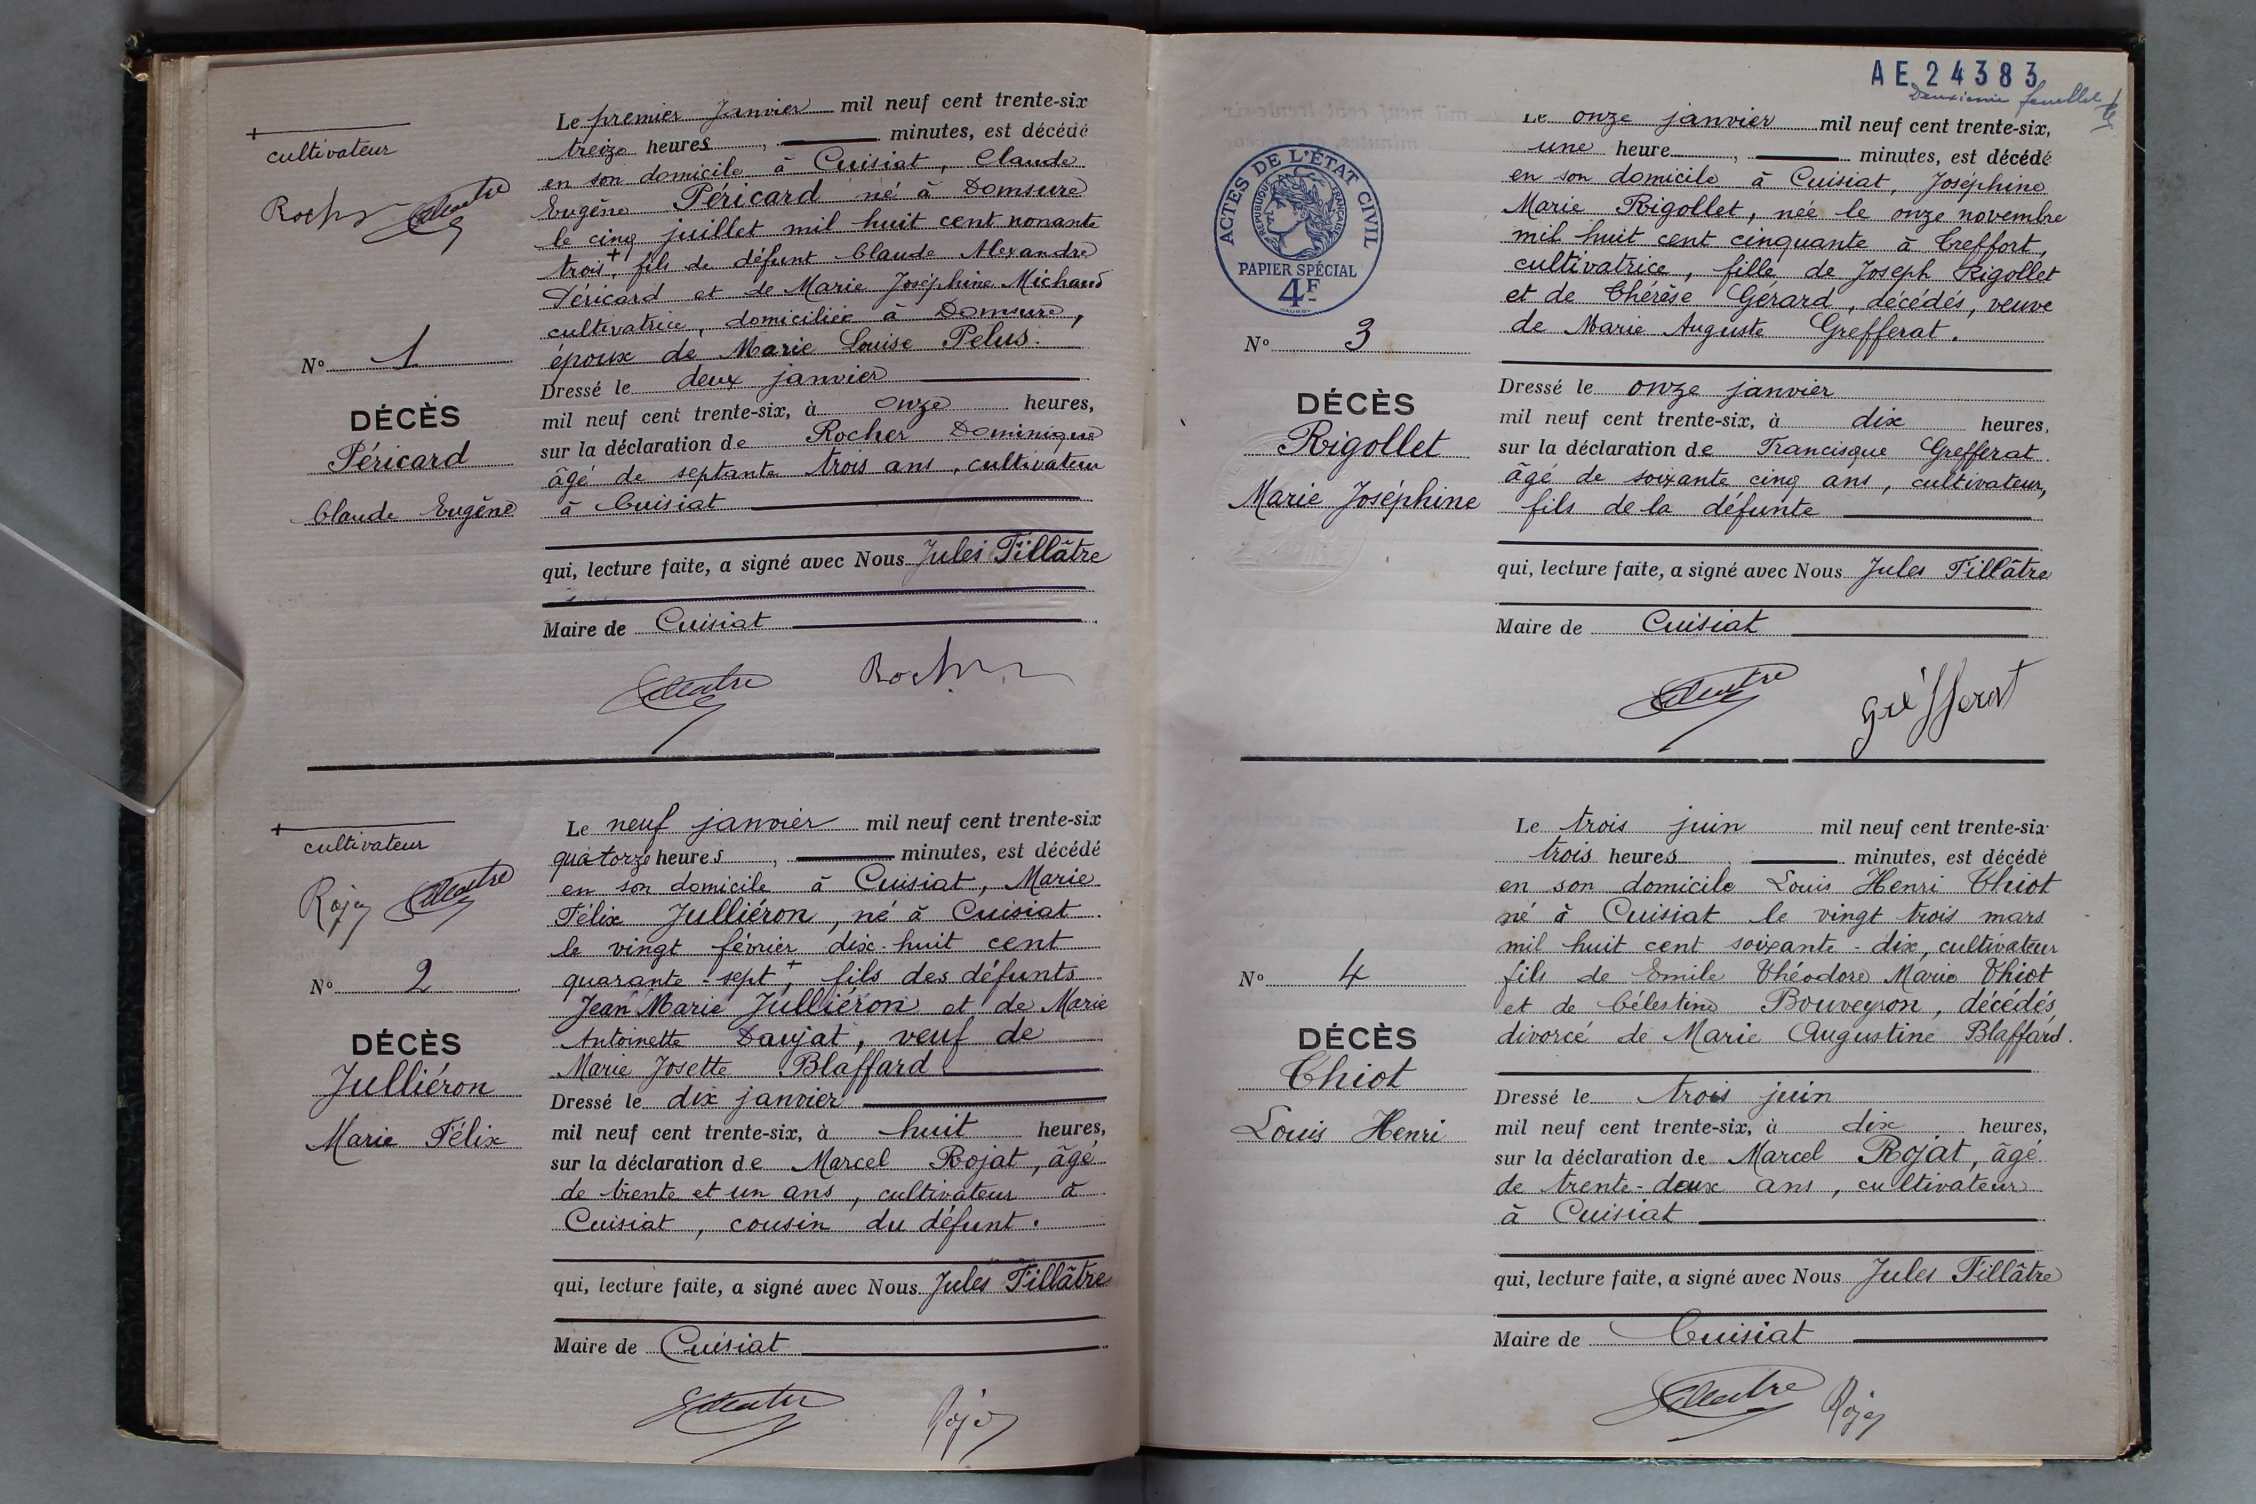 cultivateur
Le premier Janvier mil neuf cent trente-six
treize heures, minutes, est décédé
en son domicile à Cuisiat, Claude
Eugène Péricard né à Domsure
le cinq juillet mil huit cent nonante
trois +, fils de défunt Claude Alexandre
Péricard et de Marie Joséphine Michaud
cultivatrice, domiciliée à Domsure,
époux de Marie Louise Pelus.
N° 1
DÉCÈS
Péricard
Claude Eugène
Dressé le deux janvier
mil neuf cent trente-six, à onze heures,
sur la déclaration de Rocher Dominique
âgé de septante trois ans, cultivateur
à Cuisiat
qui, lecture faite, a signé avec Nous Jules Tillâtre
Maire de Cuisiat
+
cultivateur
Le neuf janvier mil neuf cent trente-six
quatorze heures, minutes, est décédé
en son domicile à Cuisiat, Marie
Félix Julliéron, né à Cuisiat
le vingt février dix-huit cent
quarante-sept +, fils des défunts
Jean Marie Julliéron et de Marie
Antoinette Daujat, veuf de
Marie Josette Blaffard
N° 2
DÉCÈS
Julliéron
Marie Félix
Dressé le dix janvier
mil neuf cent trente-six, à huit heures,
sur la déclaration de Marcel Rojat, âgé
de trente et un ans, cultivateur à
Cuisiat, cousin du défunt.
qui, lecture faite, a signé avec Nous Jules Tillâtre
Maire de Cuisiat
AE 24383
Deuxième feuillet
ACTES DE L'ÉTAT CIVIL
REPUBLIQUE FRANÇAISE
PAPIER SPÉCIAL
4F
Le onze janvier mil neuf cent trente-six,
une heure, minutes, est décédé
en son domicile à Cuisiat, Joséphine
Marie Rigollet, née le onze novembre
mil huit cent cinquante à Treffort,
cultivatrice, fille de Joseph Rigollet
et de Thérèse Gérard, décédés, veuve
de Marie Auguste Grefferat.
N° 3
DÉCÈS
Rigollet
Marie Joséphine
Dressé le onze janvier
mil neuf cent trente-six, à dix heures,
sur la déclaration de Francisque Grefferat
âgé de soixante cinq ans, cultivateur,
fils de la défunte
qui, lecture faite, a signé avec Nous Jules Tillâtre
Maire de Cuisiat
Grefferat
Le trois juin mil neuf cent trente-six
trois heures, minutes, est décédé
en son domicile Louis Henri Thiot
né à Cuisiat le vingt trois mars
mil huit cent soixante-dix, cultivateur
fils de Emile Théodore Marie Thiot
et de Célestine Bouveyron, décédés,
divorcé de Marie Augustine Blaffard.
N° 4
DÉCÈS
Thiot
Louis Henri
Dressé le trois juin
mil neuf cent trente-six, à dix heures,
sur la déclaration de Marcel Rojat, âgé
de trente-deux ans, cultivateur
à Cuisiat
qui, lecture faite, a signé avec Nous Jules Tillâtre
Maire de Cuisiat